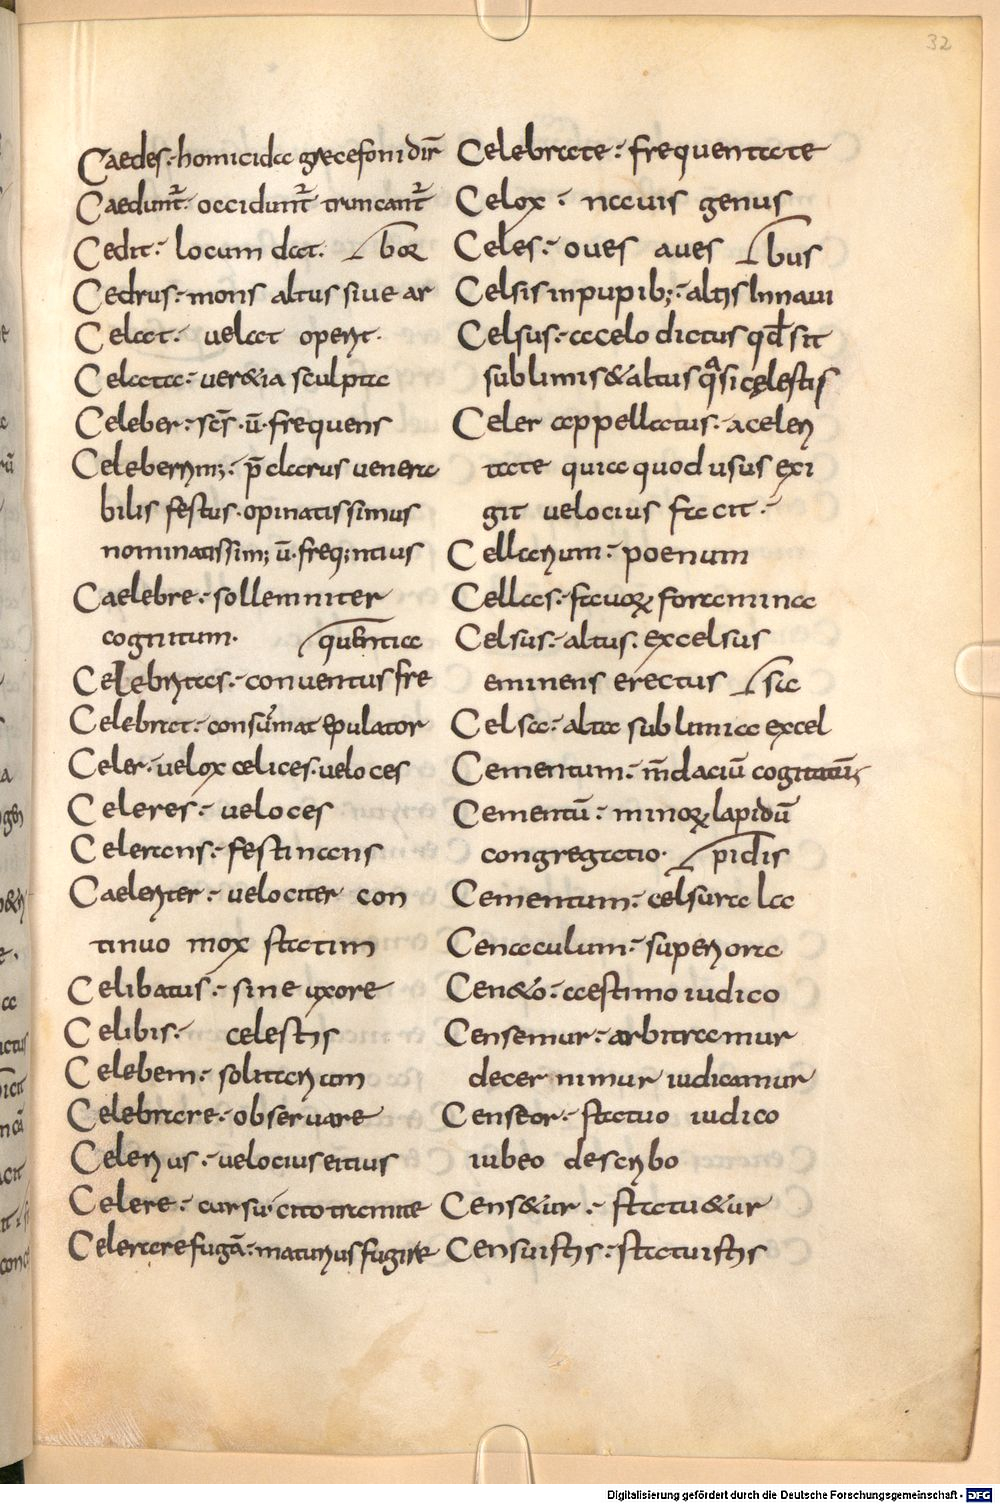 32
Caedes homicidia grecefoni dir̄
Caedunt̄ occidunt̄ truncant̄
Cedit locum dat. bor
Cedrus mons altus siue ar
Celat uelat operit
Celata uer&ia sculpta
Celeber sc̄s ū frequens
Celeberrim; p̄clarus uenera
bilis festus opinatissimus
nominatissim; ū freq;ntius
Caelebre sollemniter
cognitum. quentia
Celebritas conuentus fre
Celebrat consum̄at epulator
Celer uelox celices ueloces
Celeres ueloces
Celerans festinans
Caeleriter uelociter con
tinuo mox statim
Celibatus sine uxore
Celibis celestis
Celebem solitarium
Celebrare obseruare
Celerius uelocius citius
Celere cursu cito tramite
Celerare fugā maturius fugire
Celebrate frequentate
Celox nauis genus
Celes oues aues bus
Celsis in pupib; altis In naui
Celsus a celo dictus qd̄ sit
sublimis & altus qͣsi cęlestis
Celer appellatus a celeri
tate quia quod usus exi
git uelocius facit
Cellarium poenum
Cellas fauorum foramina
Celsus altus excelsus
eminens erectus sa
Celsa alta sublimia excel
Cementum m̄daciū
Cementū minorum lapidū
congregatio. pidis
Cementum celsura la
Cenaculum superiora
Cen&o aestimo iudico
Censemur arbitramur
decernimur iudicamur
Censeor statuo iudico
iubeo describo
Cens&ur statu&ur
Censuistis statuistis
Digitalisierung gefördert durch die Deutsche Forschungsgemeinschaft - DFG